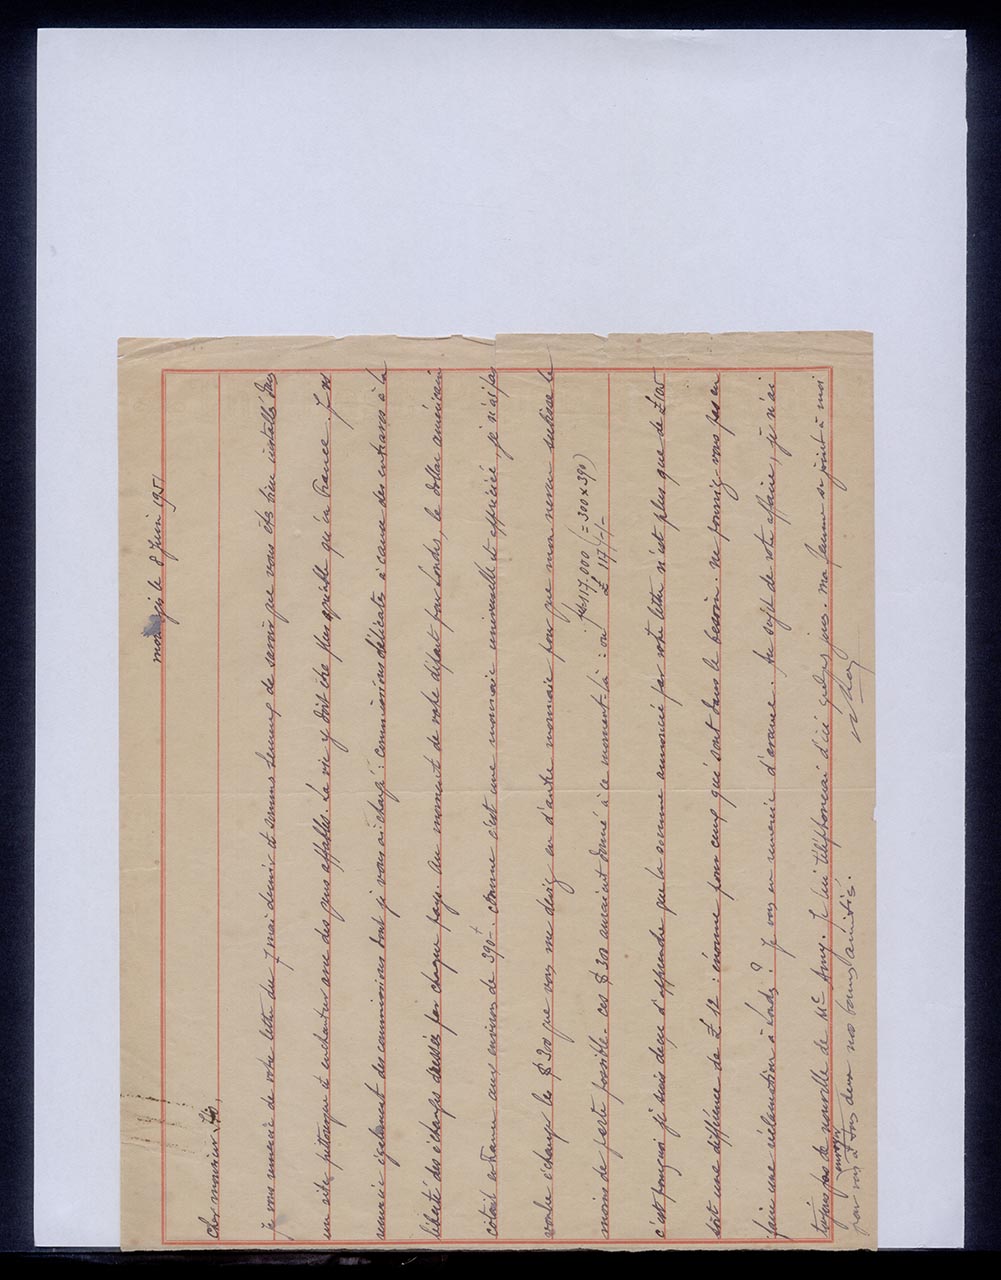 le 8 juin 1951
Cher monsieur
je vous remercie de votre lettre du 7 mai dernier et sommes heureux de savoir que vous êtes bien installés dans
un site pittoresque et enchanteur avec des gens affables. La vie y doit être plus agréable qu'en France. Je vous
remercie également des commissions dont je vous ai chargé: commissions délicates à cause des entraves à la
liberté des échanges dressées par chaque pays. Au moment de votre départ pour Londres, le dollar américain
cotait en France aux environs de 390f. comme c'est une monnaie universelle et appréciée je n'ai pas
voulu échanger les $ 300 que vous me désiez en d'autre monnaie pour que mon neveu subisse le
moins de perte possible. ces $ 300 auraient donné à ce moment-là: où frs 117.000 (= 300 x 390)
£ 117/-/-
c'est pourquoi j'ai suis déçu d'apprendre que la somme annoncée par votre lettre n'est plus que de £ 105
soit une différence de £ 12: énorme pour ceux qui sont dans le besoin. ne pourriez-vous pas en
faire une réclamation à Londres? Je vous en remercie d'avance. Au sujet de votre affaire, je n'ai
pas de nouvelle de Mc Amy. Je lui téléphonerai d'ici quelques jours. Ma femme se joint à moi
pour vous envoyer à tous deux nos bonnes amitiés.